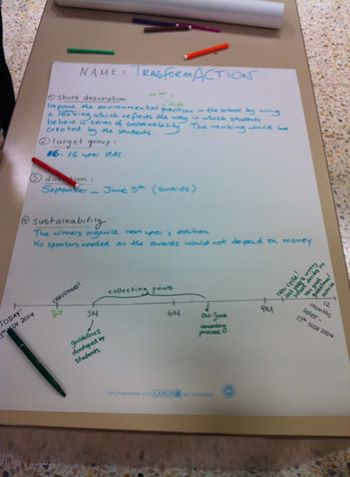 NAME: TRASFORMACTION
① Short description:
Improve the environmental practices in the school by using
a ranking which reflects the way in which students
behave in terms of sustainability. The ranking would be
created by the students.
② target group:
16 year olds.
③ duration:
September _ June 5th (awards)
④ sustainability:
The winners organise next year's edition
No sponsors needed as the awards would not depend on money
collecting points
TODAY!
NOV 2014
3M
6M
9M
12
months
later -
NOV 2014
guidelines
developed by
students
2nd June
awarding
process
New cycle!